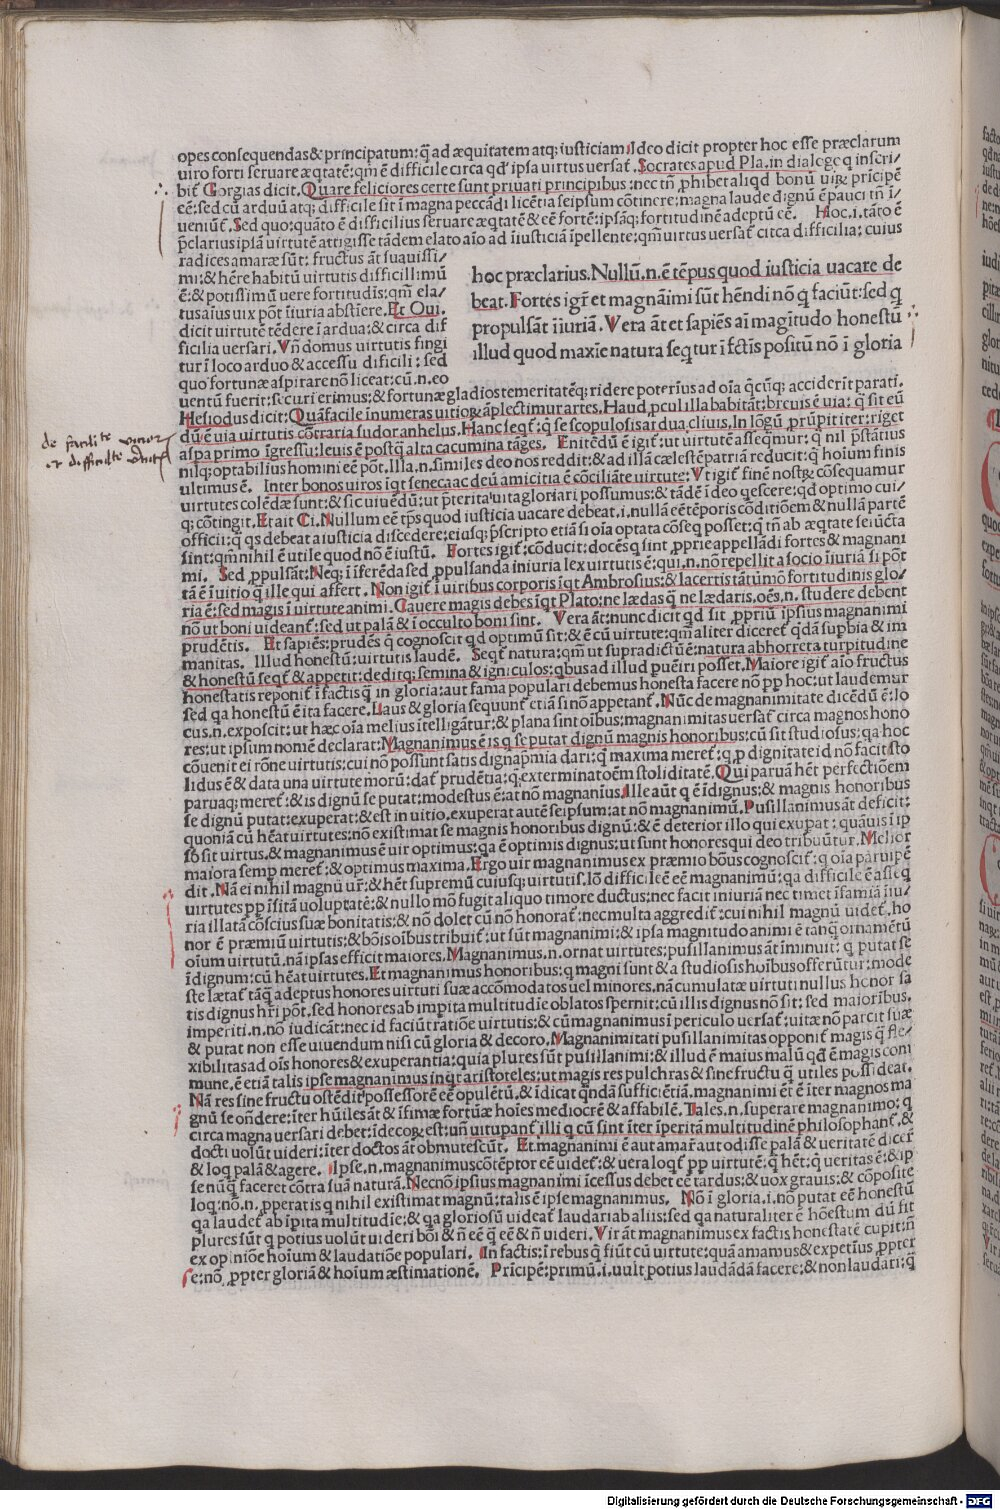 opes consequendas & principatum: q̃ ad æquitatem atq; iusticiam Ideo dicit propter hoc esse præclarum
uiro forti seruare æqtatẽ: qm̃ ẽ difficile circa qd' ipsa uirtus uersat̃. Socrates apud Pla. in dialogo q inscri/
bit̃ Gorgias dicit. Quare feliciores certe sunt priuati principibus: nec tñ phibet aliqd bonũ uirũ prĩcipẽ
eẽ: sed cũ arduũ atq; difficile sit ĩ magna peccãdi licẽtia seipsum cõtinere: magna laude dignũ ẽ pauci tñ ĩ/
ueniũt̃. Sed quo: quãto ẽ difficilius seruare æqtatẽ & eẽ fortẽ: ipsãq; fortitudinẽ adeptũ eẽ. Hoc. i. tãto ẽ
p̃clarius ipsã uirtutẽ attigisse tãdem elato aĩo ad ĩiusticiã ĩpellente: qm̃ uirtus uersat̃ circa difficilia: cuius
radices amaræ sũt: fructus ãt suauissi/
mi: & hẽre habitũ uirtutis difficillimũ
ẽ: & potissimũ uere fortitudĩs: qm̃ ela/
tus aĩus uix põt ĩiuria abstĩere. Et Oui.
dicit uirtutẽ tẽdere ĩ ardua: & circa dif
ficilia uersari. Vñ domus uirtutis fingi
tur ĩ loco arduo & accessu difícili: sed
quo fortunæ aspirare nõ liceat: cũ. n. eo
hoc præclarius. Nullũ. n. ẽ tẽpus quod iusticia uacare de
beat. Fortes igit̃ et magnãimi sũt hẽndi nõ q̃ faciũt: sed q̃
propulsãt ĩiuriã. Vera ãt et sapiẽs aĩ magĩtudo honestũ
illud quod maxĩe natura seq̃tur ĩ fc̃tis positũ nõ ĩ gloria
uentũ fuerit: securi erimus: & fortunæ gladios temeritatẽq; ridere poterĩus ad oĩa q̃cũq; acciderĩt parati.
Hesiodus dicit: Quã facile ĩnumeras uitiorũ ãplectimur artes. Haud pcul illa babitãt: breuis ẽ uia: q̃ sit eũ
dũ: ẽ uia uirtutis cõtraria sudor anhelus. Hanc seqt̃: q̃ se scopulosis ardua cliuis. In lõgũ prũpit iter: riget
aspa primo ĩgressu: leuis ẽ postq̃ alta cacumina tãges. Enitẽdũ ẽ igit̃: ut uirtutẽ asseq̃mur: q̃ nil p̃stãtius
nilq; optabilius homini eẽ põt. Illa. n. similes deo nos reddit: & ad illã cælestẽ patriã reducit: q̃ hoĩum finis
ultimus ẽ. Inter bonos uiros ĩqt senecaac deũ amicitia ẽ cõciliãte uirtute: Vt igit̃ finẽ nostrũ cõsequamur
uirtutes colẽdæ sunt: & sic uiuẽdũ: ut p̃terita uita gloriari possumus: & tãdẽ ĩ deo q̃escere: qd optimo cui/
q; cõtingit. Et ait Ci. Nullum eẽ tp̃s quod iusticia uacare debeat. i. nullã eẽ tẽporis cõditiõem & nullã partẽ
officii: q̃ qs debeat a iusticia discedere: eiusq; p̃scripto etiã si oĩa optata cõseq̃ posset: q̃ tñ ab æqtate seiũcta
sint: qm̃ nihil ẽ utile quod nõ ẽ iustũ. Fortes igit̃: cõducit: docẽs q̃ sint pprie appellãdi fortes & magnani
mi. Sed ppulsãt: Neq; ĩ ĩferẽda sed ppulsanda iniuria lex uirtutis ẽ: qui. n. nõ repellit a socio ĩiuriã si põt
tã ẽ ĩ uitio q̃ ille qui affert. Non igit̃ ĩ uiribus corporis ĩqt Ambrosius: & lacertis tãtũmõ fortitudinis glo/
ria ẽ: sed magis ĩ uirtute animi. Cauere magis debes ĩqt Plato: ne lædas q̃ ne lædaris. oẽs. n. studere debent
nõ ut boni uideant̃: sed ut palã & ĩ occulto boni sint. Vera ãt: nunc dicit qd sit ppriũ ipsius magnanimi
prudẽtis. Et sapiẽs: prudẽs q̃ cognoscit qd optimũ sit: & ẽ cũ uirtute: qm̃ aliter diceret̃ q̃dã supbia & im
manitas. Illud honestũ: uirtutis laudẽ. Seqt̃ natura: qm̃ ut supradictũ ẽ: natura abhorret a turpitudine
& honestũ seqt̃ & appetit: deditq; semina & igniculos: qbus ad illud puẽiri posset. Maiore igit̃ aĩo fructus
honestatis reponit̃ ĩ factis q̃ in gloria: aut fama populari debemus honesta facere nõ pp hoc: ut laudemur
sed qa honestũ ẽ ita facere. Laus & gloria sequunt̃ etiã si nõ appetant̃. Nũc de magnanimitate dicẽdũ ẽ: lo
cus. n. exposcit: ut hæc oĩa melius ĩtelligãtur: & plana sint oĩbus: magnanimitas uersat̃ circa magnos hono
res: ut ipsum nomẽ declarat: Magnanimus ẽ is q̃ se putat dignũ magnis honoribus: cũ sit studiosus: qa hoc
cõuenit ei rõne uirtutis: cui nõ possunt satis digna pmia dari: q̃ maxima meret̃: q̃ p dignitate id nõ facit sto
lidus ẽ & data una uirtute morũ: dat̃ prudẽtia: q̃ exterminatoẽm stoliditatẽ. Qui paruã hẽt perfectiõem
paruaq; meret̃: & is dignũ se putat: modestus ẽ: at nõ magnanĩus. Ille aũt q̃ ẽ ĩdignus: & magnis honoribus
se dignũ putat: exuperat: & est in uitio. exuperat autẽ seipsum: at nõ magnanimũ. Pusillanimus ãt deficit:
quoniã cũ hẽat uirtutes: nõ existimat se magnis honoribus dignũ: & ẽ deterior illo qui exupat: quãuis ĩ ip
so sit uirtus. & magnanimus ẽ uir optimus: qa ẽ optimis dignus: ut sunt honores qui deo tribuũtur. Melior
maiora semp meret̃: & optimus maxima. Ergo uir magnanimus ex præmio bõus cognoscit̃: q̃ oĩa paruipẽ
dit. Nã ei nihil magnũ ur̃: & hẽt supremũ cuiusq; uirtutis. Iõ difficile ẽ eẽ magnanimũ: qa difficile ẽ asseq
uirtutes pp ĩsitã uoluptatẽ: & nullo mõ fugit aliquo timore ductus: nec facit iniuriã nec timet ĩfamiã ĩiu/
ria illatã cõscius suæ bonitatis: & nõ dolet cũ nõ honorat̃: nec multa aggredit̃: cui nihil magnũ uidet̃. ho
nor ẽ præmiũ uirtutis: & bõis oĩbus tribuit̃: ut sũt magnanimi: & ipsa magnitudo animi ẽ tanq̃ ornamẽtũ
oĩum uirtutũ. nã ipsas efficit maiores. Magnanimus. n. ornat uirtutes: pusillanimus ãt ĩminuit: q̃ putat se
ĩdignum: cũ hẽat uirtutes. Et magnanimus honoribus: q̃ magni sunt & a studiosis hoĩbus offerũtur: mode
ste lætat̃ tãq̃ adeptus honores uirtuti suæ accõmodatos uel minores. nã cumulatæ uirtuti nullus honor sa
tis dignus hr̃i põt. sed honores ab impita multitudĩe oblatos spernit: cũ illis dignus nõ sit: sed maiorĩbus.
imperiti. n. nõ iudicãt: nec id faciũt ratiõe uirtutis: & cũ magnanimus ĩ periculo uersat̃: uitæ nõ parcit suæ
& putat non esse uiuendum nisi cũ gloria & decoro. Magnanimitati pusillanimitas opponit̃ magis q̃ fle/
xibilitas ad oĩs honores & exuperantia: quia plures sũt pusillanimi: & illud ẽ maius malũ qd ẽ magis com
mune. ẽ etiã talis ipse magnanimus inqt aristoteles: ut magis res pulchras & sine fructu q̃ utiles possideat.
Nã res sine fructu ostẽdit possessorẽ eẽ opulẽtũ. & ĩdicat q̃ndã sufficiẽtiã. magnanimi ẽt ẽ ĩter magnos ma
gnũ se oñdere: ĩter hũiles ãt & ĩfimæ fortũæ hoĩes mediocrẽ & affabilẽ. Tales. n. superare magnanimo: q
circa magna uersari debet: ĩdecorũ est: uñ uitupant̃ illi q cũ sint ĩter ĩperitã multitudinẽ philosophant̃. &
docti uolũt uideri: ĩter doctos ãt obmutescũt. Et magnanimi ẽ aut amar̃ aut odisse palã & ueritatẽ dicer̃
& loq̃ palã & agere. Ipse. n. magnanimus cõtẽptor eẽ uidet̃: & uera loqt̃ pp uirtutẽ: q̃ hẽt: q̃ ueritas ẽ: & ip
se nũq̃ faceret cõtra suã naturã. Necnõ ipsius magnanimi ĩcessus debet eẽ tardus: & uox grauis: & cõposite
loq: nõ. n. pperat is q nihil existimat magnũ: talis ẽ ipse magnanimus. Nõ ĩ gloria. i. nõ putat eẽ honestũ
qa laudet̃ ab ĩpita multitudĩe: & qa gloriosũ uideat̃ laudari ab aliis: sed qa naturaliter ẽ hõestum dũ fit
plures sũt q potius uolũt uideri bõi & ñ eẽ q̃ eẽ & ñ uideri. Vir ãt magnanimus ex factis honestatẽ cupit: ñ
ex opiniõe hoĩum & laudatiõe populari. In factis: ĩ rebus q̃ fiũt cũ uirtute: quã amamus & expetĩus ppter
se: nõ ppter gloriã & hoĩum æstimationẽ. Prĩcipẽ: primũ. i. uult potius laudãdã facere: & non laudari: q̃
de facilitate vitiorũ
et difficultate virtutis
Digitalisierung gefördert durch die Deutsche Forschungsgemeinschaft - DFG